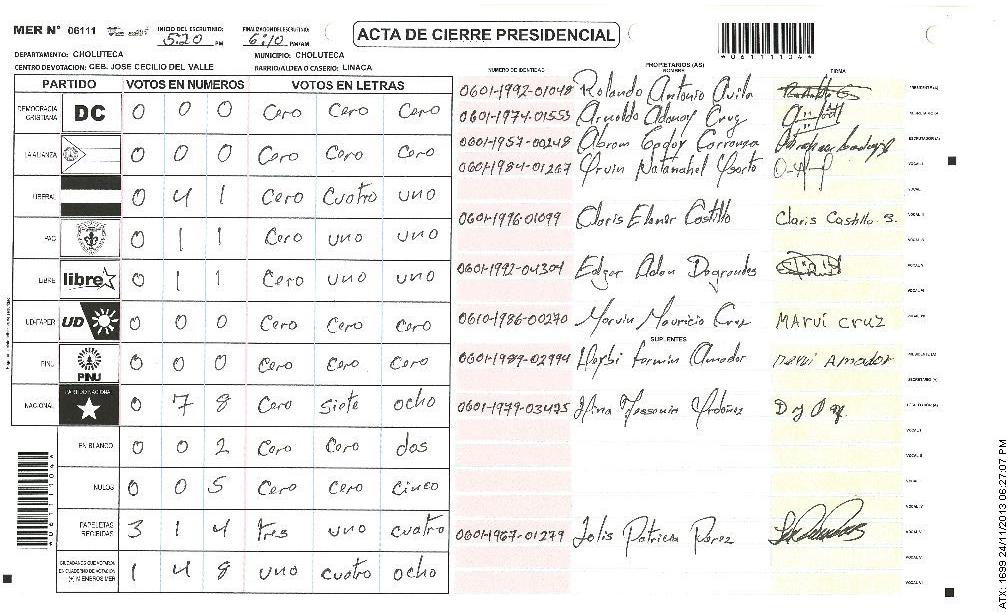 MER N° 06111 INICIO DEL ESCRUTINIO: 5:20 PM FINALIZACION DEL ESCRUTINIO: 6:10 PM/AM.
ACTA DE CIERRE PRESIDENCIAL
DEPARTAMENTO: CHOLUTECA MUNICIPIO: CHOLUTECA
CENTRO DE VOTACION: CEB. JOSE CECILIO DEL VALLE BARRIO/ALDEA O CASERIO: LINACA
PARTIDO VOTOS EN NUMEROS VOTOS EN LETRAS
DEMOCRACIA CRISTIANA DC 0 0 0 Cero Cero Cero
LA ALIANZA 0 0 0 Cero Cero Cero
LIBERAL 0 4 1 Cero Cuatro uno
PAC 0 1 1 Cero uno uno
LIBRE libre 0 1 1 Cero uno uno
UD-FAPER UD 0 0 0 Cero Cero Cero
PINU PINU 0 0 0 Cero Cero Cero
NACIONAL PARTIDO NACIONAL 0 7 8 Cero siete ocho
EN BLANCO 0 0 2 Cero Cero dos
NULOS 0 0 5 Cero Cero cinco
PAPELETAS RECIBIDAS 3 1 4 tres uno cuatro
CIUDADANOS QUE VOTARON EN CUADERNO DE VOTACION (+) MIEMBROS MER 1 4 8 uno cuatro ocho
NUMERO DE IDENTIDAD PROPIETARIOS (AS) NOMBRE FIRMA
0601-1992-01048 Rolando Antonio Avila PRESIDENTE (A)
0601-1974-01553 Arnoldo Adonay Cruz SECRETARIO (A)
0601-1957-00248 Abram Godoy Carranza ESCRUTADOR (A)
0601-1984-01267 Natanahel VOCAL I
0601-1996-01099 Claris Elenor Castillo Claris Castillo VOCAL III
0601-1992-04304 Edgar VOCAL V
0610-1986-00270 Marvin Mauricio Cruz MARVI CRUZ
SUPLENTES
0601-1989-02994 Fermin Amador Amador PRESIDENTE (A)
SECRETARIO (A)
0601-1979-03475 Yessenia Ordoñez
0601-1967-01279 Patricia Perez
*06111104*
ATX 1699 24/11/2013 06:27:07 PM